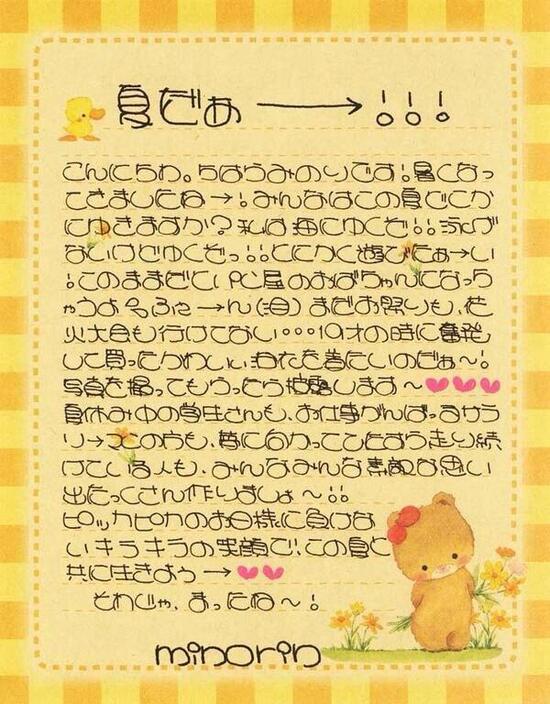 夏だぁ→!!!
こんにちわ。ちはらみのりです!暑くなっ
てきましたね→!みんなはこの夏どこか
にゆきますか?私は海にゆくぞ!!泳げ
ないけどゆくぞっ!!とにかく遊びたぁ→い
!このままだと、PC屋のおばちゃんになっち
ゃうよぉふぇ→ん(泪)まだお祭りも、花
火大会も行けてない・・・19才の時に奮発
して買ったかわいいゆかたを着たいのだぁ〜!
写真を撮ってもらったら披露します〜
夏休み中の学生さんも、お仕事がんばってるサラ
リ→マンの方も、夢に向かってひたすら走り続
けている人も、みんなみんな素敵な思い
出たっくさん作りましょ〜!!
ピッカピカのお日様に負けな
いキラキラの笑顔で、この夏と
共に生きよう→
それじゃ、まったね〜!
minorin